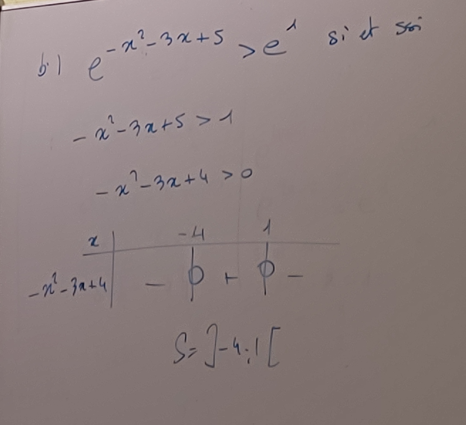 b.) e^{-x²-3x+5} > e^1 si et ssi
-x²-3x+5 > 1
-x²-3x+4 > 0
x -4 1
-x²-3x+4 - 0 + 0 -
S= ]-4;1[